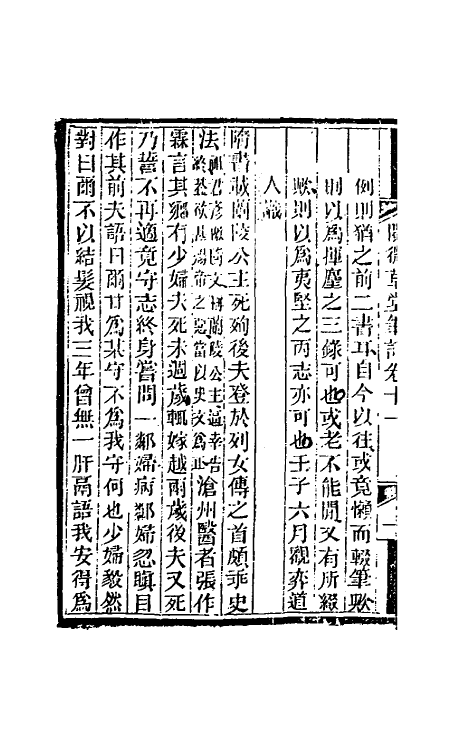 閱微草堂筆記卷十一
例則猶之前二書耳自今以往或竟懶而輟筆歟
則以為揮麈之三錄可也或老不能閒又有所綴
歟則以為夷堅之丙志亦可也壬子六月觀弈道
人識
隋書載蘭陵公主死殉後夫登於列女傳之首頗乖史
法祖君彥檄隋文稱蘭陵公主逼幸告終蓋欲甚煬帝之惡當以史文為正滄州醫者張作
霖言其鄉有少婦夫死未週歲輒嫁越兩歲後夫又死
乃誓不再適竟守志終身嘗問一鄰婦病鄰婦忽瞋目
作其前夫語曰爾甘為某守不為我守何也少婦毅然
對曰爾不以結髮視我三年曾無一肝鬲語我安得為